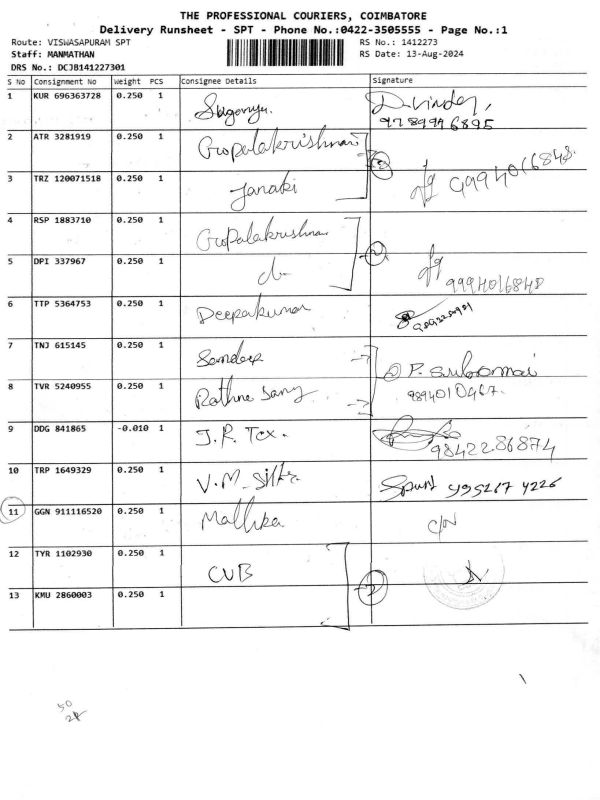 THE PROFESSIONAL COURIERS, COIMBATORE
Delivery Runsheet - SPT - Phone No.:0422-3505555 - Page No.:1
Route: VISWASAPURAM SPT RS No.: 1412273
Staff: MANMATHAN RS Date: 13-Aug-2024
DRS No.: DCJB141227301
S No Consignment No Weight PCS Consignee Details Signature
1 KUR 696363728 0.250 1 Suganya.
2 ATR 3281919 0.250 1 Gopalakrishnan
3 TRZ 120071518 0.250 1 Janaki 2 9994016848.
4 RSP 1883710 0.250 1 Gopalakrishnan
5 DPI 337967 0.250 1 2 9994016848
6 TTP 5364753 0.250 1 Deepakumar
7 TNJ 615145 0.250 1 Sandeep
8 TVR 5240955 0.250 1 9894010467.
9 DDG 841865 -0.010 1 J.R. Tex. 98422 86874
10 TRP 1649329 0.250 1 V.M. 995267 4226
11 GGN 911116520 0.250 1 Mallika C/N
12 TYR 1102930 0.250 1 CUB
13 KMU 2860003 0.250 1
50